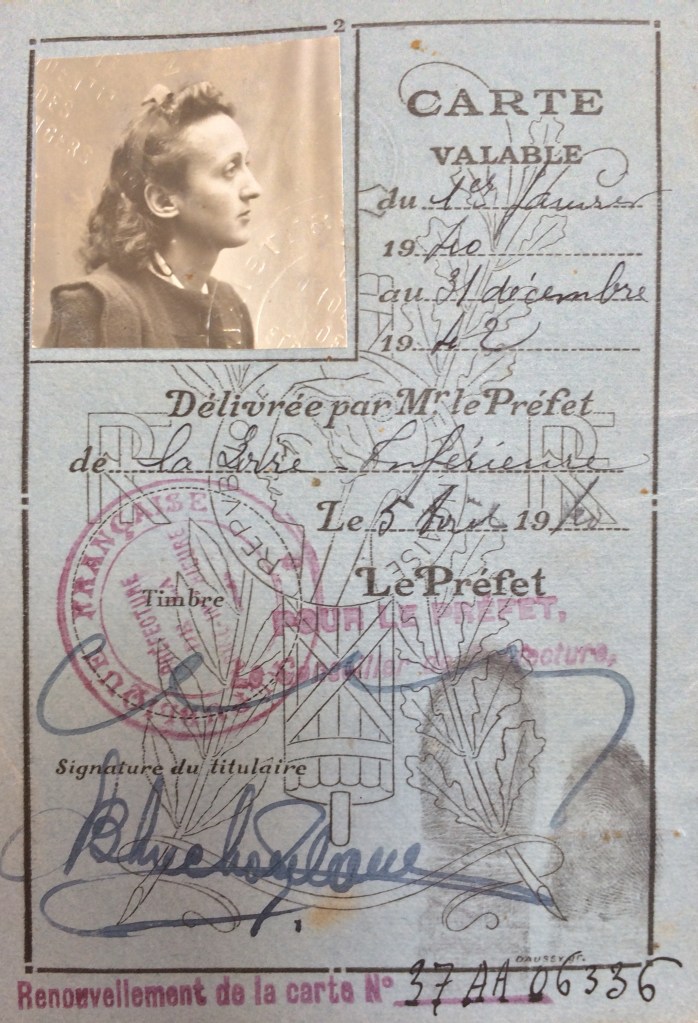 2
CARTE
VALABLE
du 1er Janvier
1940
au 31 décembre
1942
Délivrée par Mr le Préfet
de la Loire-Inférieure
Le 5 Avril 1940
Le Préfet
Timbre
FRANÇAISE
POUR LE PRÉFET,
Le Conseiller de Préfecture,
Signature du titulaire
1
Renouvellement de la carte N° 37AA06336